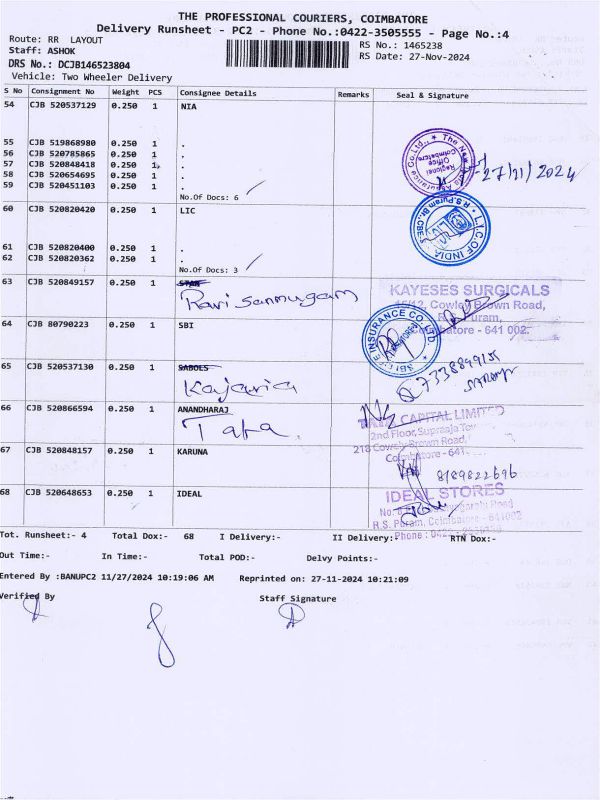 THE PROFESSIONAL COURIERS, COIMBATORE
Delivery Runsheet - PC2 - Phone No.:0422-3505555 - Page No.:4
Route: RR LAYOUT
RS No.: 1465238
Staff: ASHOK
RS Date: 27-Nov-2024
DRS No.: DCJB146523804
Vehicle: Two Wheeler Delivery
S No Consignment No Weight PCS Consignee Details Remarks Seal & Signature
54 CJB 520537129 0.250 1 NIA
55 CJB 519868980 0.250 1 .
56 CJB 520785865 0.250 1 .
57 CJB 520848418 0.250 1 .
58 CJB 520654695 0.250 1 .
59 CJB 520451103 0.250 1 .
No.Of Docs: 6
The New Assurance Co. Ltd.,
Regional Office Coimbatore
27/11/2024
60 CJB 520820420 0.250 1 LIC
61 CJB 520820400 0.250 1 .
62 CJB 520820362 0.250 1 .
No.Of Docs: 3
L.I.C. OF INDIA
R.S. Puram Br., CBE
63 CJB 520849157 0.250 1 STAR
Ravi Sanmugam
KAYESES SURGICALS
Cowley Brown Road,
Puram,
Coimbatore - 641 002.
64 CJB 80790223 0.250 1 SBI
SBI LIFE INSURANCE CO. LTD.
65 CJB 520537130 0.250 1 SABOLS
Kajaria
7338899155
66 CJB 520866594 0.250 1 ANANDHARAJ
Tata
TATA CAPITAL LIMITED
2nd Floor, Supraaja
218 Cowley Brown Road,
Coimbatore - 641
67 CJB 520848157 0.250 1 KARUNA
8189822696
68 CJB 520648653 0.250 1 IDEAL
IDEAL STORES
Road
R.S. Puram, Coimbatore - 641002
Phone : 0422
Tot. Runsheet:- 4 Total Dox:- 68 I Delivery:- II Delivery:- RTN Dox:-
Out Time:- In Time:- Total POD:- Delvy Points:-
Entered By :BANUPC2 11/27/2024 10:19:06 AM Reprinted on: 27-11-2024 10:21:09
Verified By Staff Signature